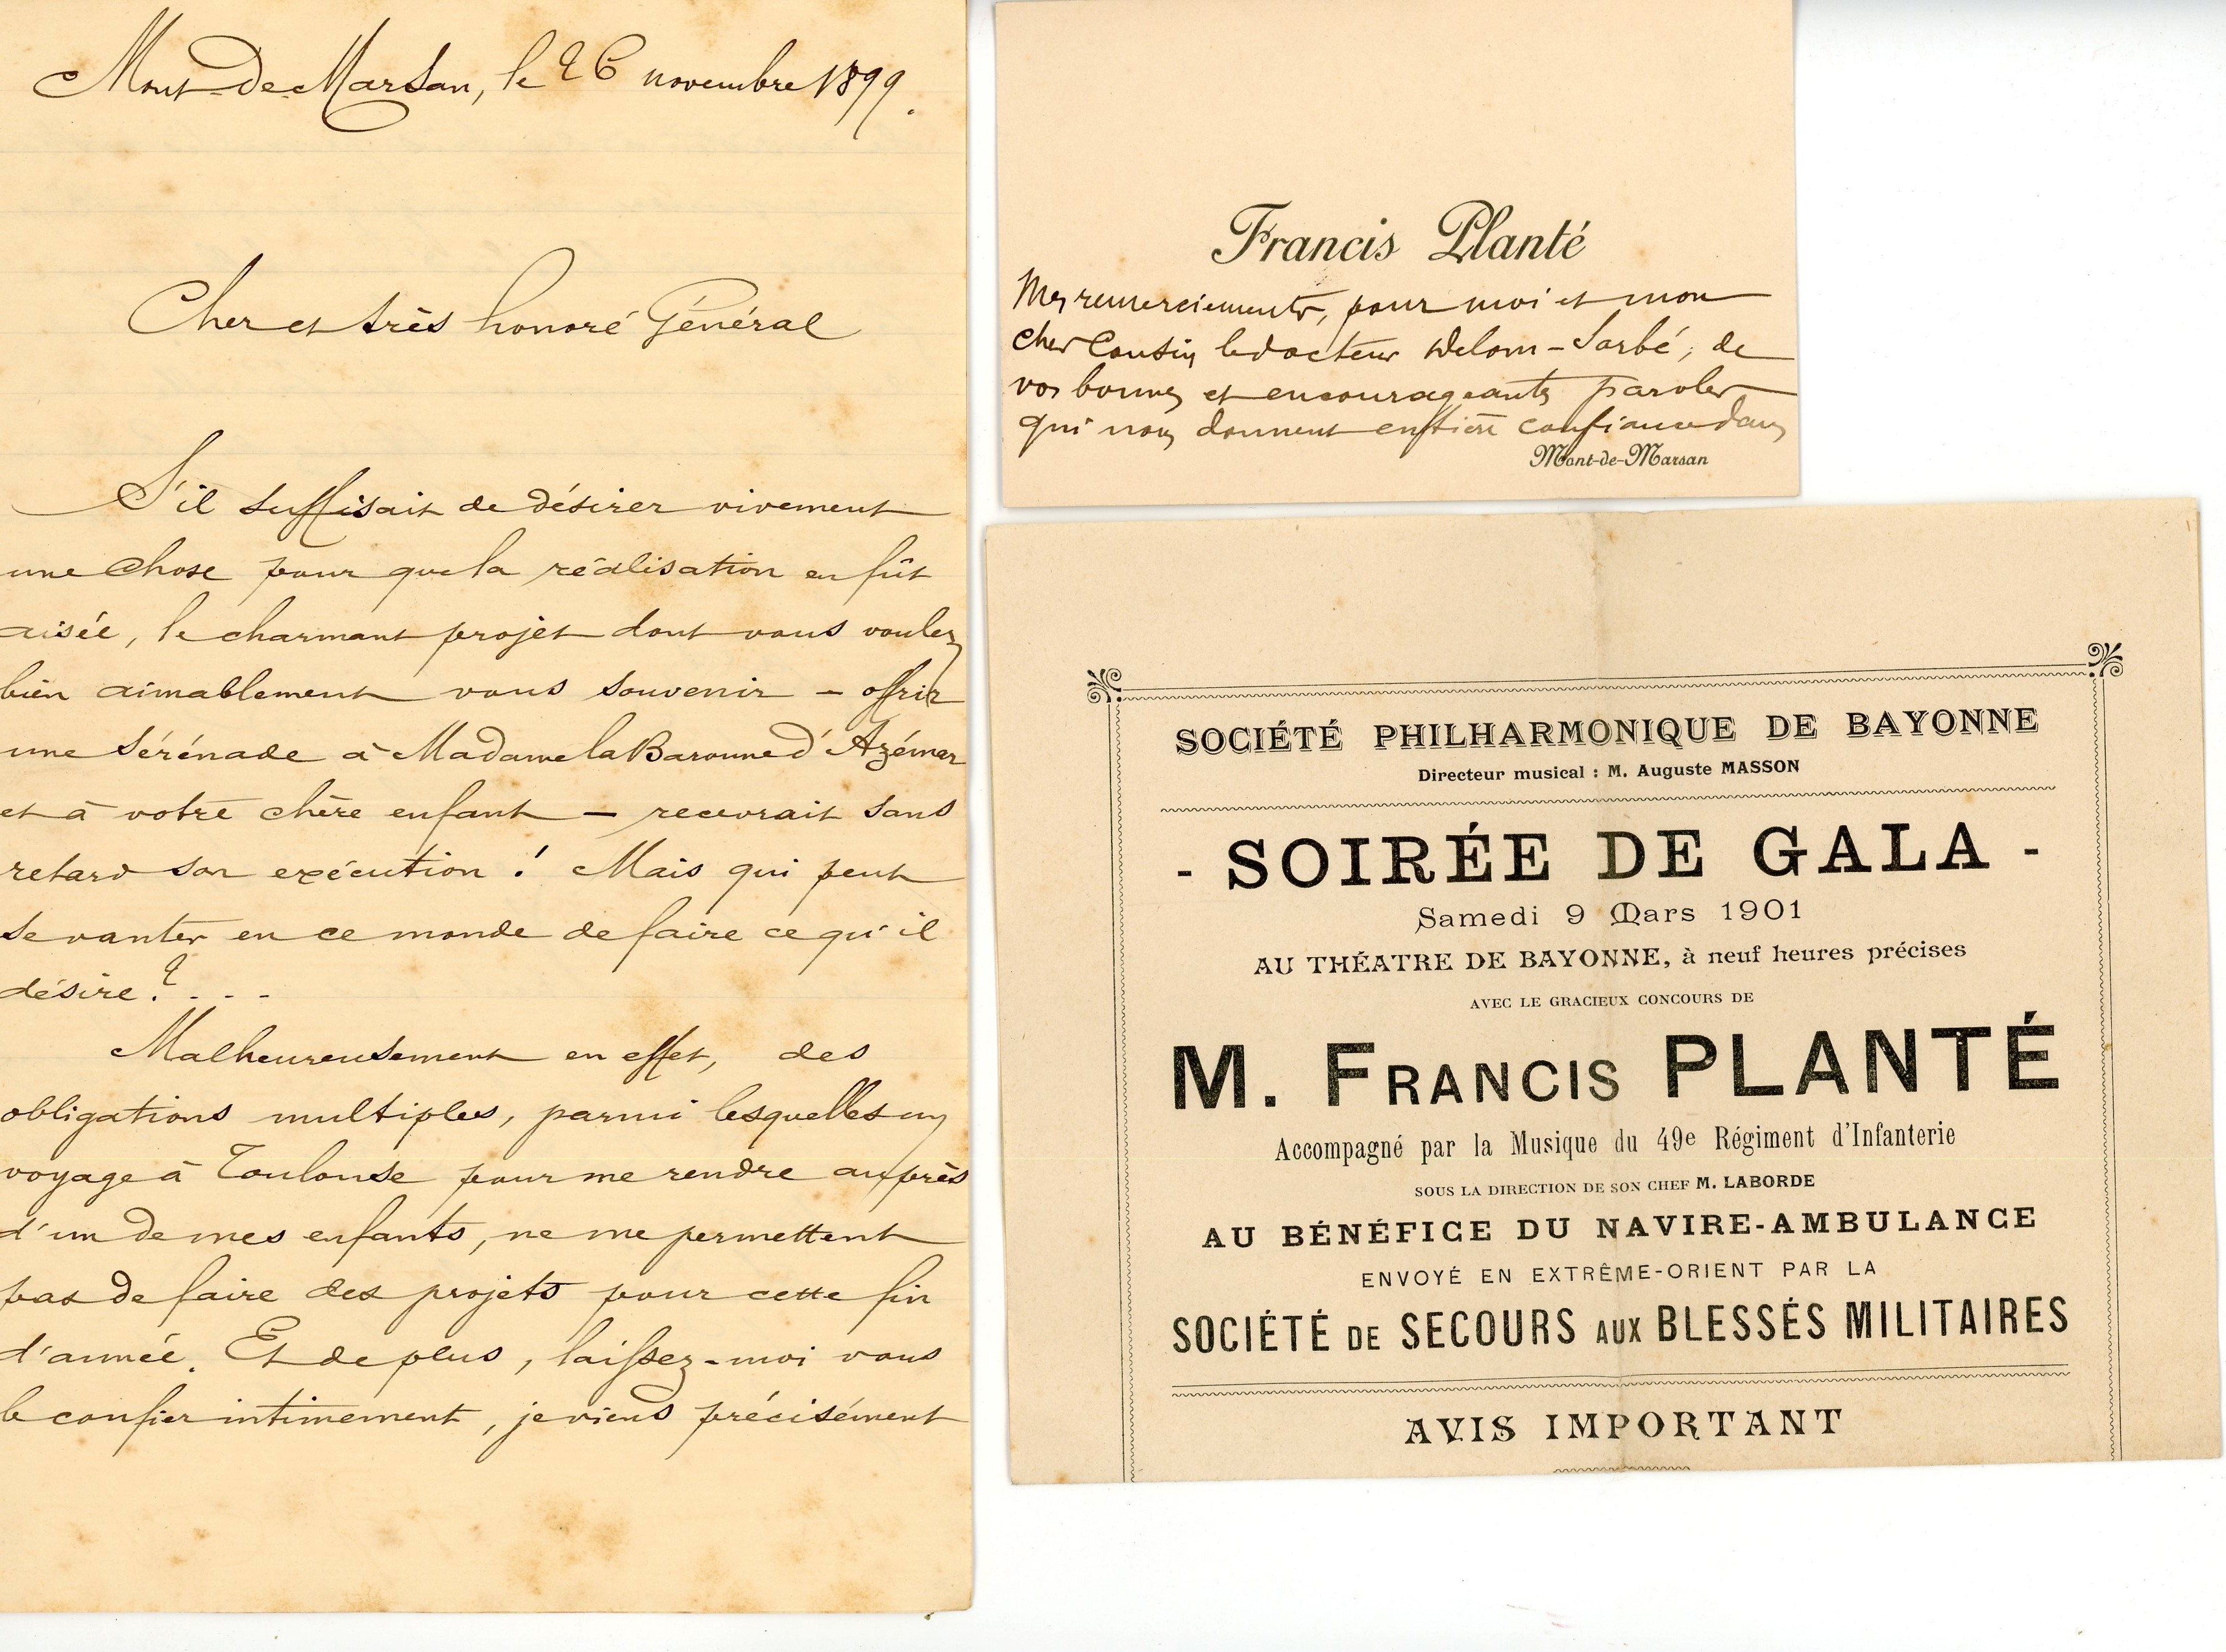 Mont-de-Marsan, le 26 novembre 1899.
Cher et très honoré Général
S'il suffisait de désirer vivement
une chose pour que la réalisation en fût
aisée, le charmant projet dont vous voulez
bien aimablement vous souvenir – offrir
une sérénade à Madame la Baronne d'Azémar
et à votre chère enfant – recevrait sans
retard son exécution ! Mais qui peut
se vanter en ce monde de faire ce qu'il
désire ? . . .
Malheureusement en effet, des
obligations multiples, parmi lesquelles un
voyage à Toulouse pour me rendre auprès
d'un de mes enfants, ne me permettent
pas de faire des projets pour cette fin
d'année. Et de plus, laissez-moi vous
le confier intimement, je viens précisément
Francis Planté
Mes remerciements, pour moi et mon
cher Cousin le docteur Delom-Sorbé, de
vos bonnes et encourageantes paroles
qui nous donnent entière confiance dans
Mont-de-Marsan
SOCIÉTÉ PHILHARMONIQUE DE BAYONNE
Directeur musical : M. Auguste MASSON
- SOIRÉE DE GALA -
Samedi 9 Mars 1901
AU THÉATRE DE BAYONNE, à neuf heures précises
AVEC LE GRACIEUX CONCOURS DE
M. FRANCIS PLANTÉ
Accompagné par la Musique du 49e Régiment d'Infanterie
SOUS LA DIRECTION DE SON CHEF M. LABORDE
AU BÉNÉFICE DU NAVIRE-AMBULANCE
ENVOYÉ EN EXTRÊME-ORIENT PAR LA
SOCIÉTÉ DE SECOURS AUX BLESSÉS MILITAIRES
AVIS IMPORTANT